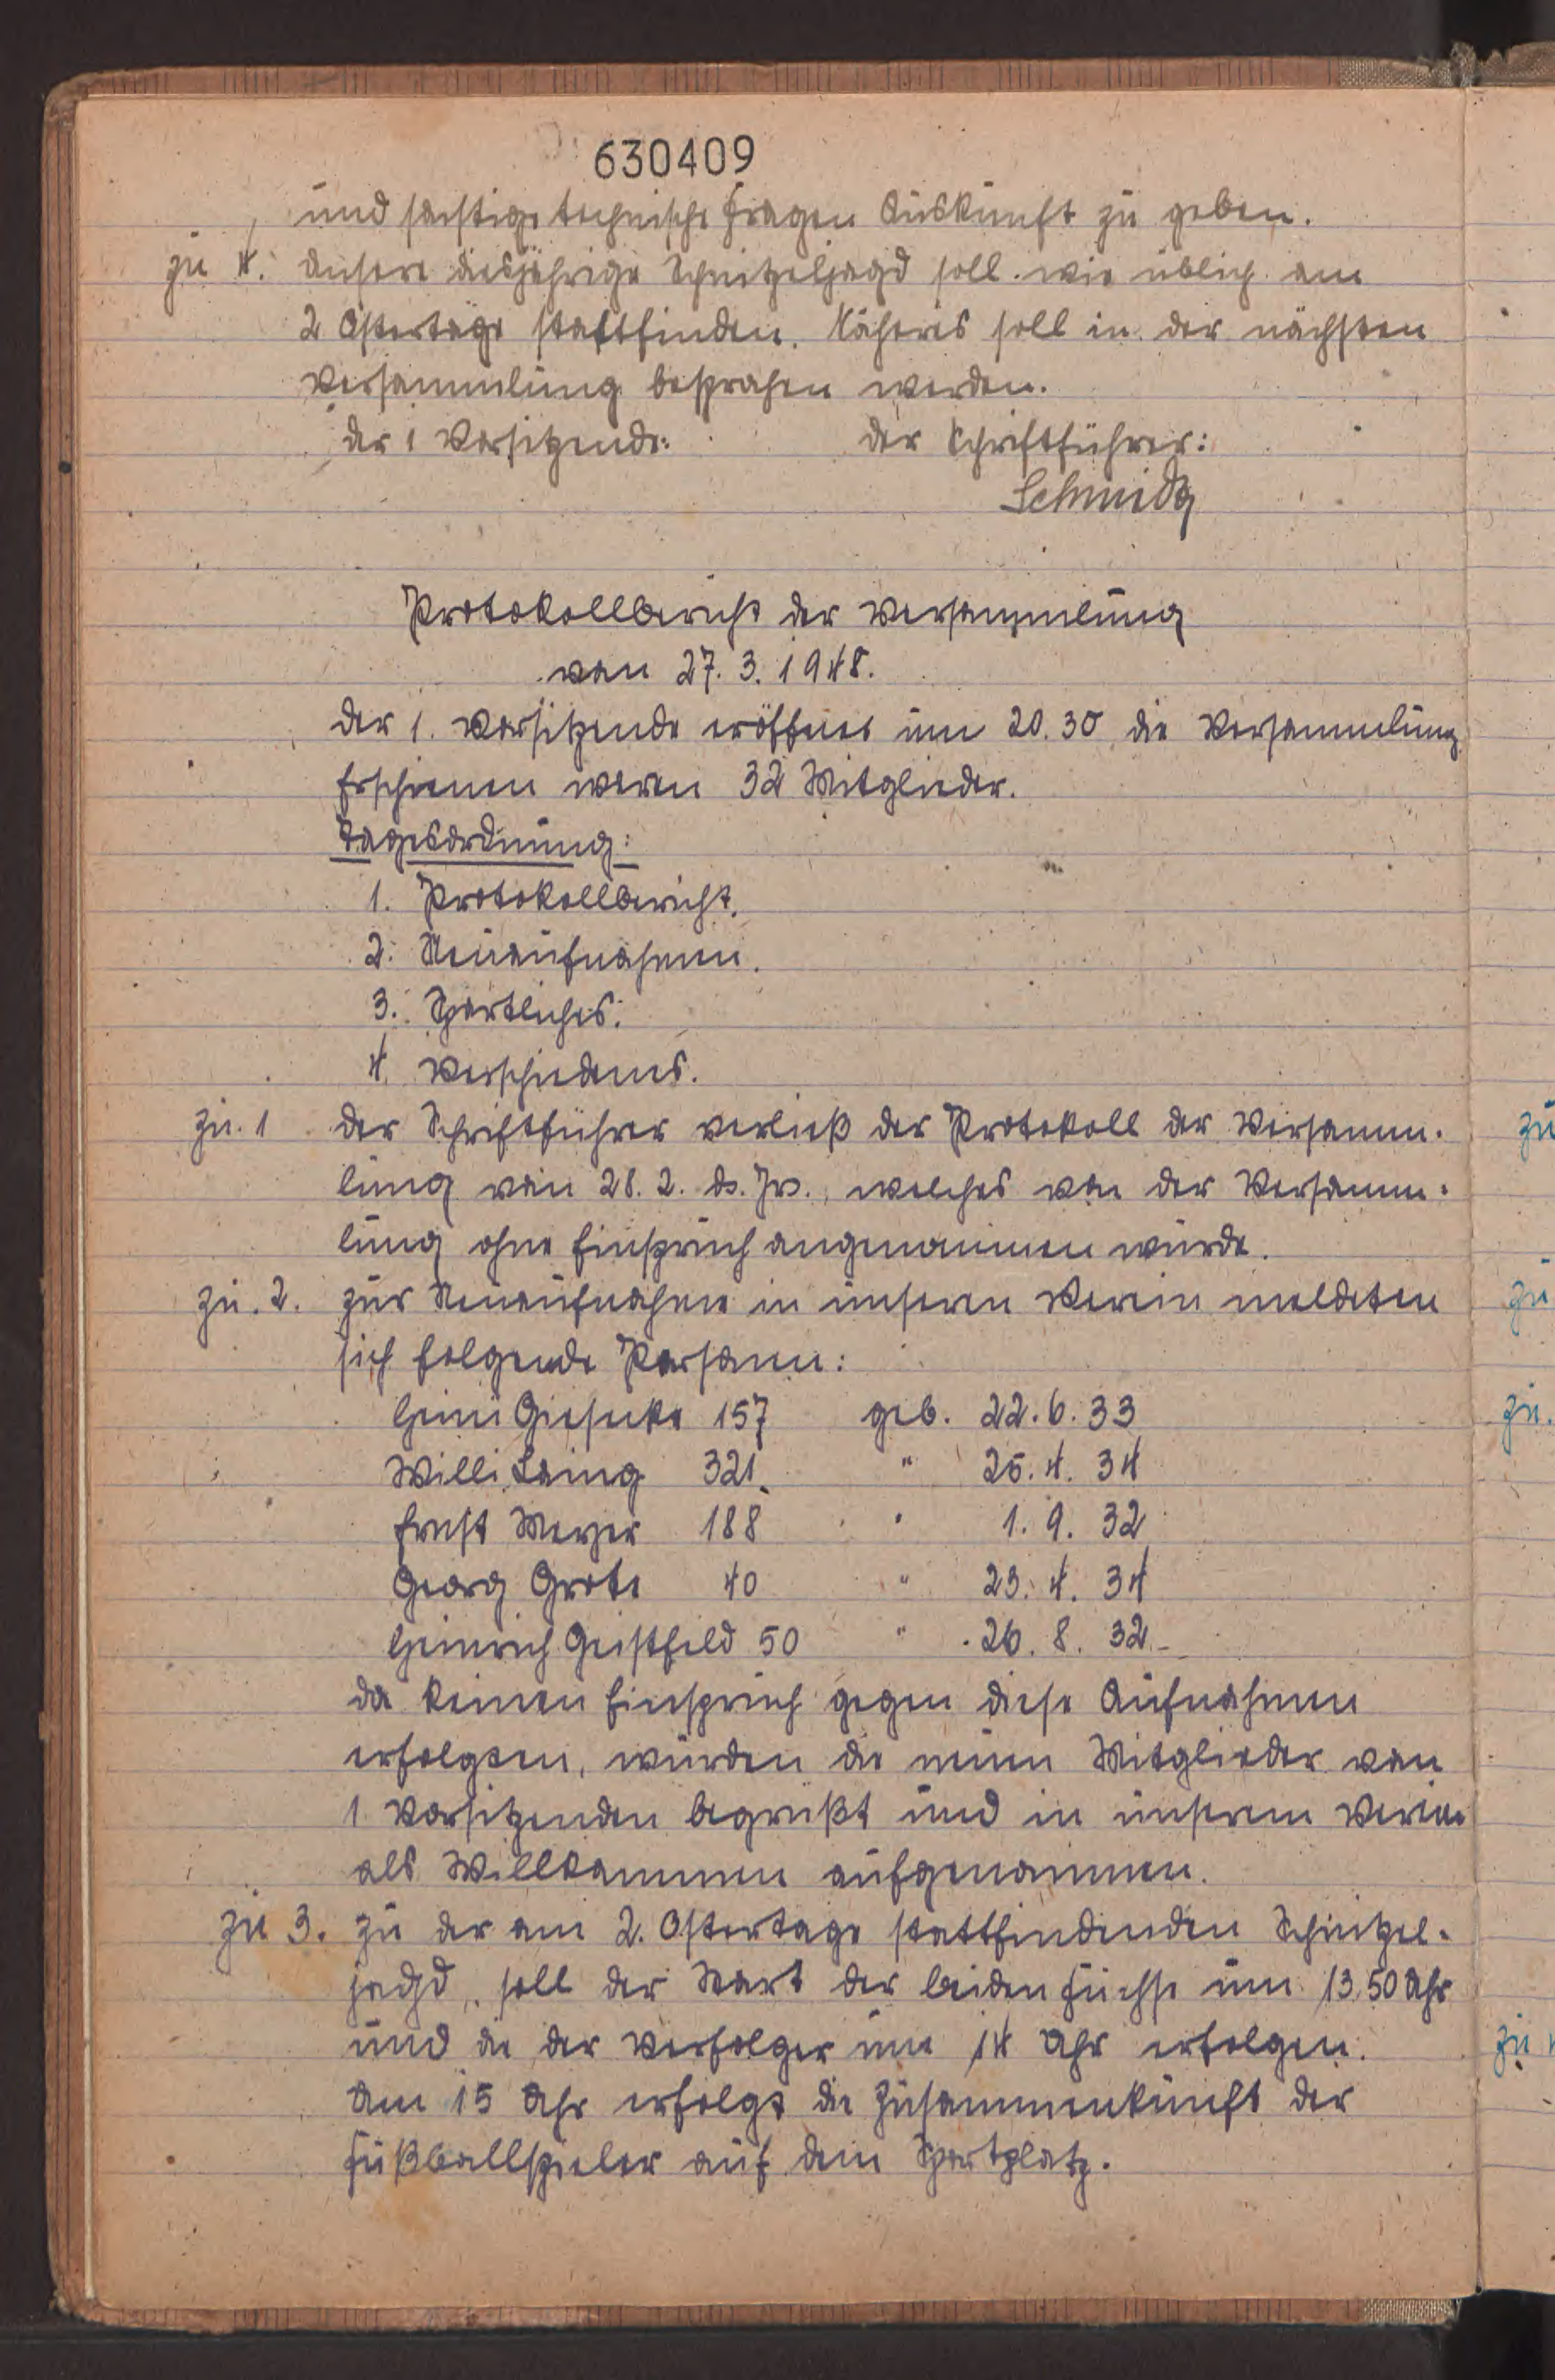 630409
und sonstige technische Fragen Auskunft zu geben.
zu 4. Unsere diesjährige Schnitzeljagd soll wie üblich am
2 Ostertage stattfinden. Näheres soll in der nächsten
Versammlung besprochen werden.
der 1 Vorsitzende: der Schriftführer:
Schmidt
Protokollbericht der Versammlung
vom 27. 3. 1948.
Der 1. Vorsitzende eröffnet um 20.30 die Versammlung
Erschienen waren 32 Mitglieder.
Tagesordnung:
1. Protokollbericht.
2. Neuaufnahmen.
3. Sportliches.
4. Verschiedenes.
zu. 1 der Schriftführer verließ das Protokoll der Versamm-
lung vom 28. 2. ds. Jrs., welches von der Versamm-
lung ohne Einspruch angenommen wurde.
zu. 2. Zur Neuaufnahme in unseren Verein meldeten
sich folgende Personen:
Heini Gieseke 157 geb. 22. 6. 33
Willi Laing 321. " 25. 4. 34
Ernst Meyer 188 " 1. 9. 32
Georg Grote 40 " 23. 4. 34
Heinrich Geistfeld 50 " 26. 8. 32
da keinen Einspruch gegen diese Aufnahmen
erfolgten, wurden die neuen Mitglieder vom
1 Vorsitzenden begrüßt und in unserem Verein
als Willkommen aufgenommen.
zu 3. Zu der am 2. Ostertage stattfindenden Schnitzel-
jagd, soll der Start der beiden Füchse um 13,50 Uhr
und die der Verfolger um 14 Uhr erfolgen.
Um 15 Uhr erfolgt die Zusammenkunft der
Fußballspieler auf dem Sportplatz.
zu
zu
zu.
zu